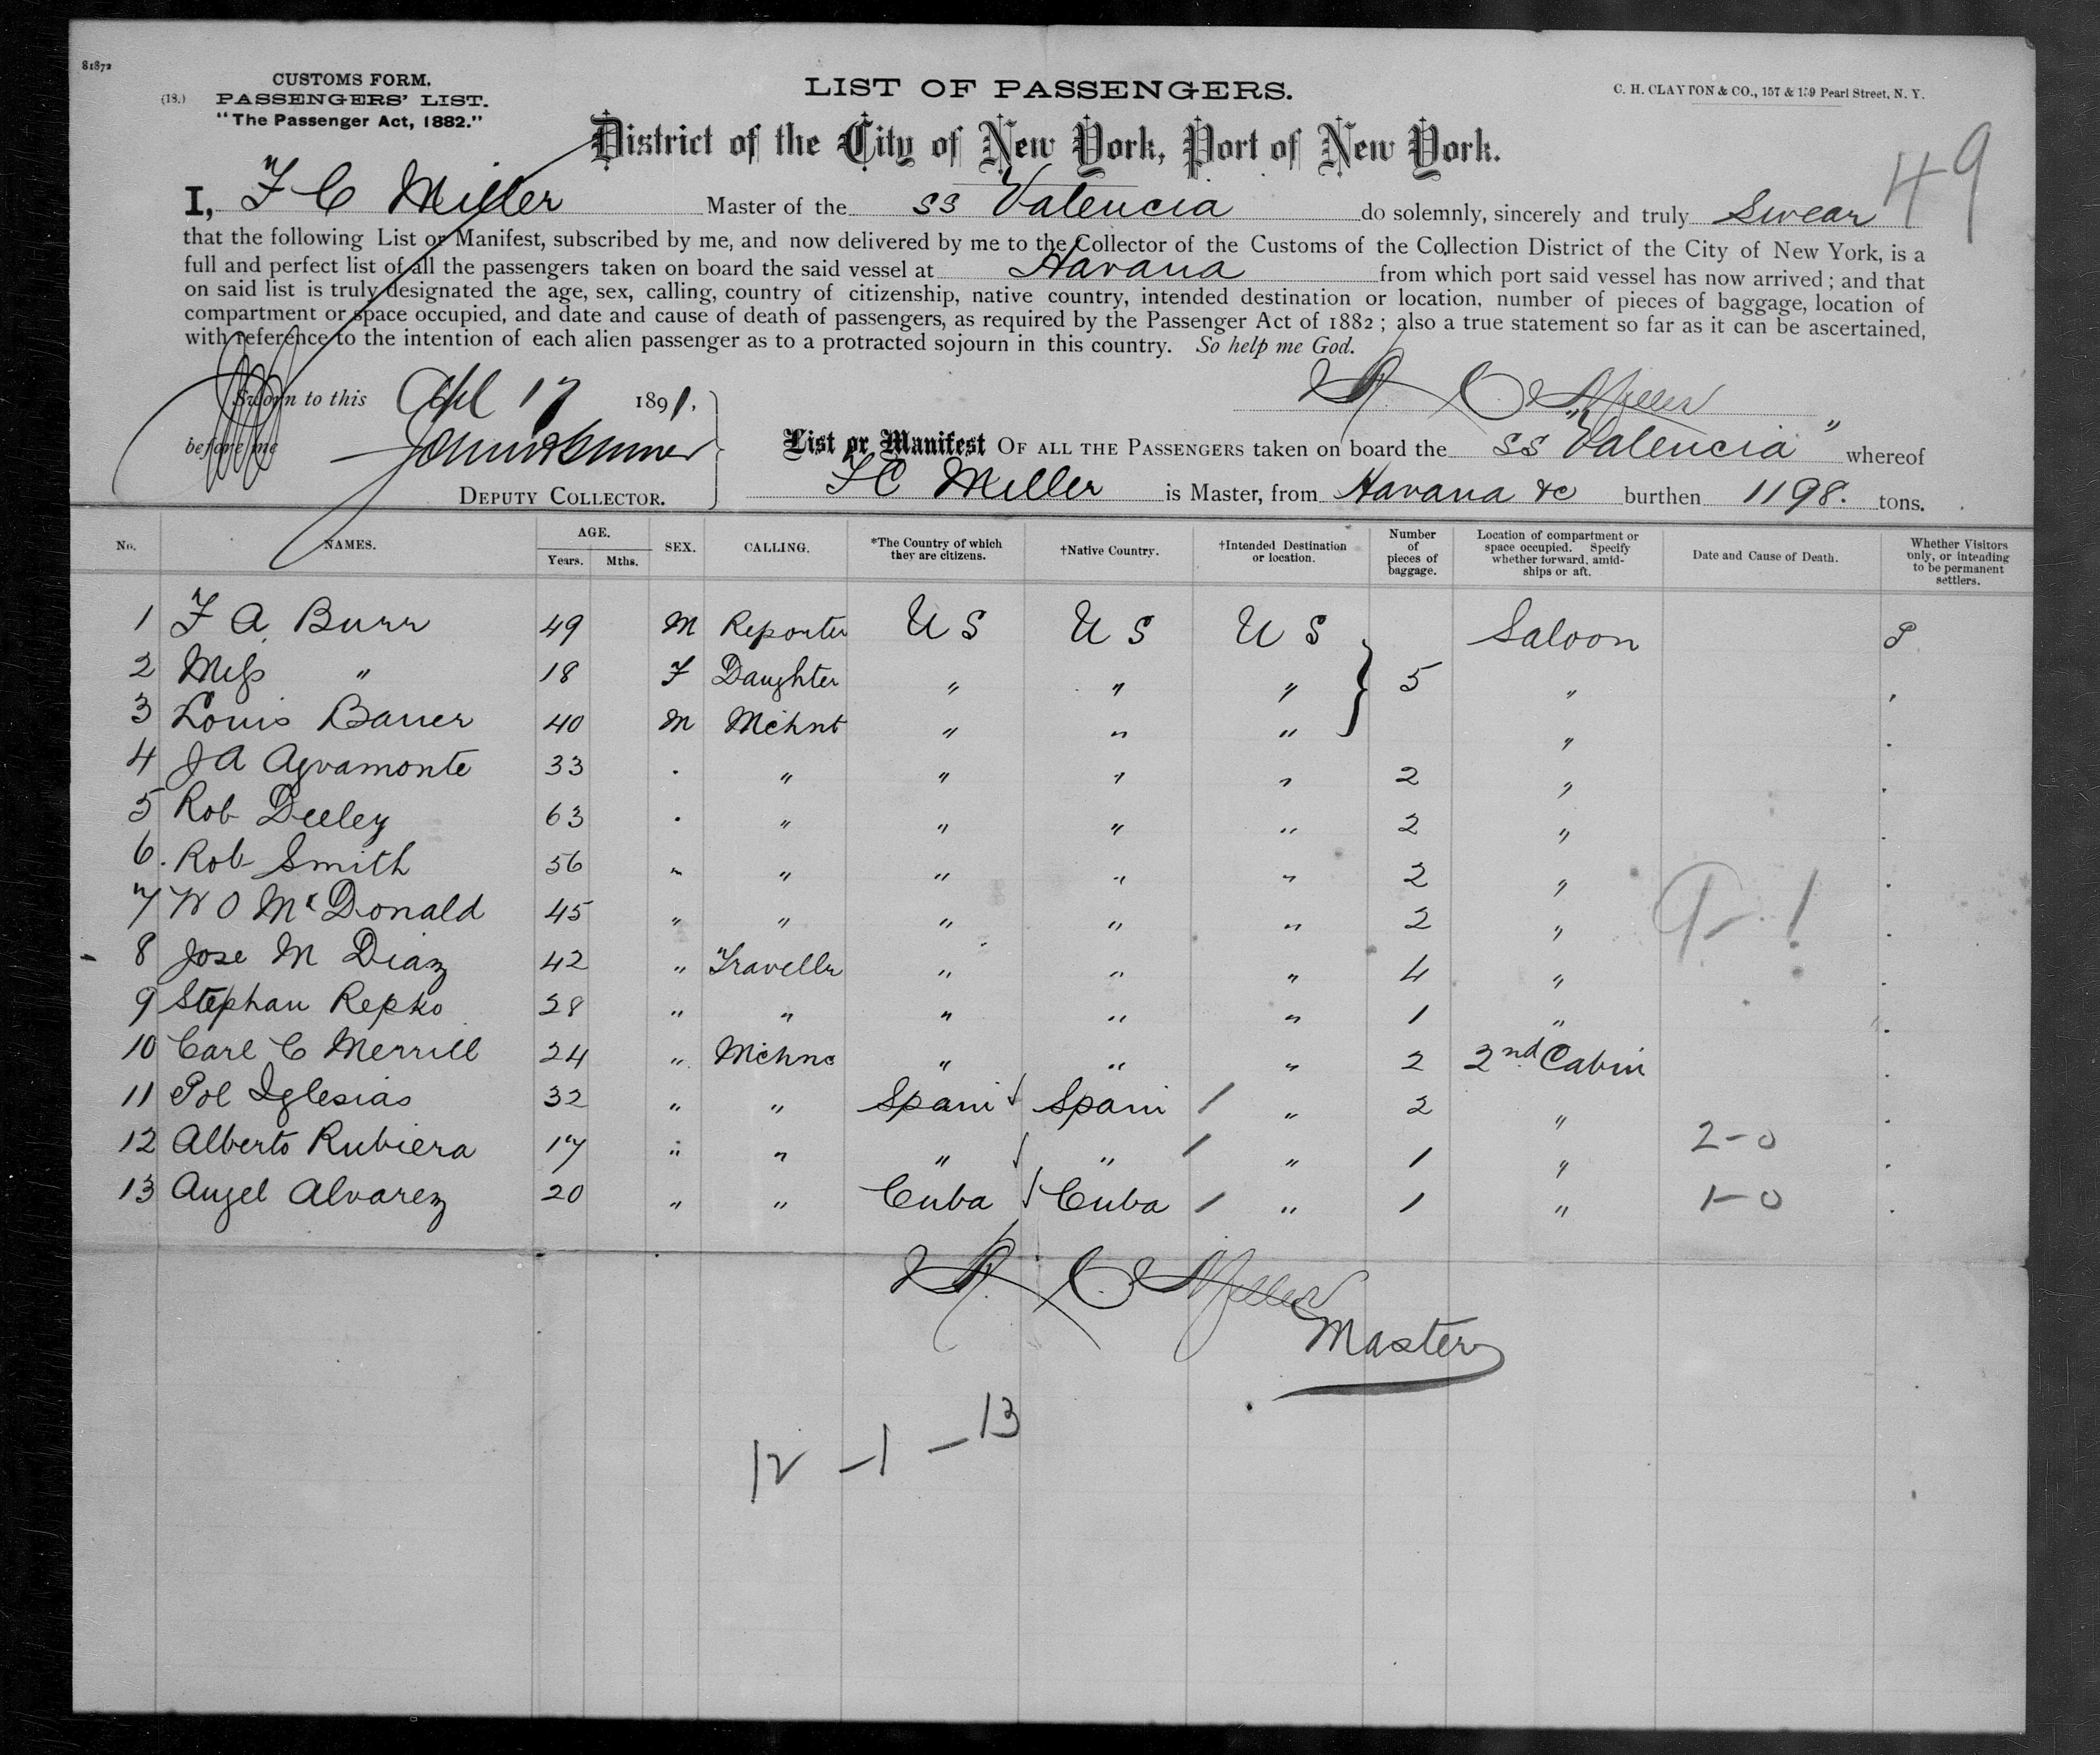 81872
CUSTOMS FORM.
(18.) PASSENGERS' LIST.
"The Passenger Act, 1882."
LIST OF PASSENGERS.
C. H. CLAYTON & CO., 157 & 159 Pearl Street, N. Y.
District of the City of New York, Port of New York.
49
I, F C Miller Master of the SS Valencia do solemnly, sincerely and truly Swear
that the following List or Manifest, subscribed by me, and now delivered by me to the Collector of the Customs of the Collection District of the City of New York, is a
full and perfect list of all the passengers taken on board the said vessel at Havana from which port said vessel has now arrived; and that
on said list is truly designated the age, sex, calling, country of citizenship, native country, intended destination or location, number of pieces of baggage, location of
compartment or space occupied, and date and cause of death of passengers, as required by the Passenger Act of 1882; also a true statement so far as it can be ascertained,
with reference to the intention of each alien passenger as to a protracted sojourn in this country. So help me God.
Sworn to this Apl 17 1891.
F. C. Miller
before me
DEPUTY COLLECTOR.
List or Manifest OF ALL THE PASSENGERS taken on board the SS "Valencia" whereof
F C Miller is Master, from Havana &c burthen 1198. tons.
No. NAMES. AGE. Years. Mths. SEX. CALLING. *The Country of which they are citizens. †Native Country. †Intended Destination or location. Number of pieces of baggage. Location of compartment or space occupied. Specify whether forward, amidships or aft. Date and Cause of Death. Whether Visitors only, or intending to be permanent settlers.
1 F A Burr 49 M Reporter U S U S U S Saloon P
2 Miss " 18 F Daughter " " " } 5 " "
3 Louis Bauer 40 M Mchnt " " " " "
4 J A Agramonte 33 " " " " " 2 " "
5 Rob Deeley 63 " " " " " 2 " "
6. Rob Smith 56 " " " " " 2 " "
7 W O McDonald 45 " " " " " 2 " "
8 Jose M Diaz 42 " Travellr " " " 4 " "
9 Stephan Repko 28 " " " " " 1 " "
10 Carl C Merrill 24 " Mchnt " " " 2 2nd Cabin "
11 Pol Iglesias 32 " " Spain Spain " 2 " "
12 Alberto Rubiera 17 " " " " " 1 " 2-0 "
13 Angel Alvarez 20 " " Cuba Cuba " 1 " 1-0 "
F. C. Miller
Master
12 - 1 - 13